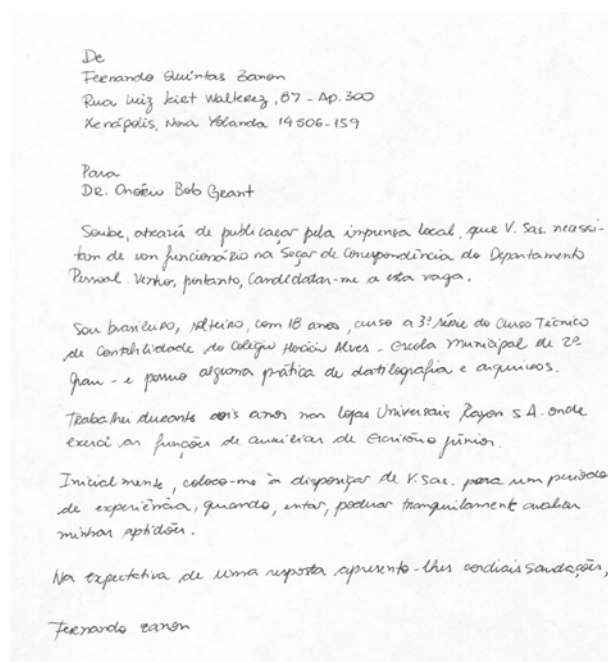 De
Fernando Quintas Zanon
Rua Luiz Kiet Walterez, 57 - Ap. 300
Xenápolis, Nova Yolanda 14506-159
Para
Dr. Onório Bob Grant
Soube, através de publicaçar pela imprensa local, que V. Sas. necessi-
tam de um funcionário na Seçar de Correspondência do Departamento
Pessoal. Venho, portanto, Candidatar-me a esta vaga.
Sou brasileiro, solteiro, com 18 anos, curso a 3ª série do Curso Técnico
de Contabilidade do Colégio Horácio Alves - escola municipal de 2º
grau - e possuo alguma prática de datilografia e arquivos.
Trabalhei durante dois anos nas lojas Universais Rayon S.A. onde
exerci as funções de auxiliar de Escritório júnior.
Inicialmente, coloco-me à disposiçar de V. Sas. para um período
de experiência, quando, entar, poderar tranquilamente avaliar
minhas aptidões.
Na expectativa de uma resposta apresento-lhes cordiais saudações,
Fernando Zanon